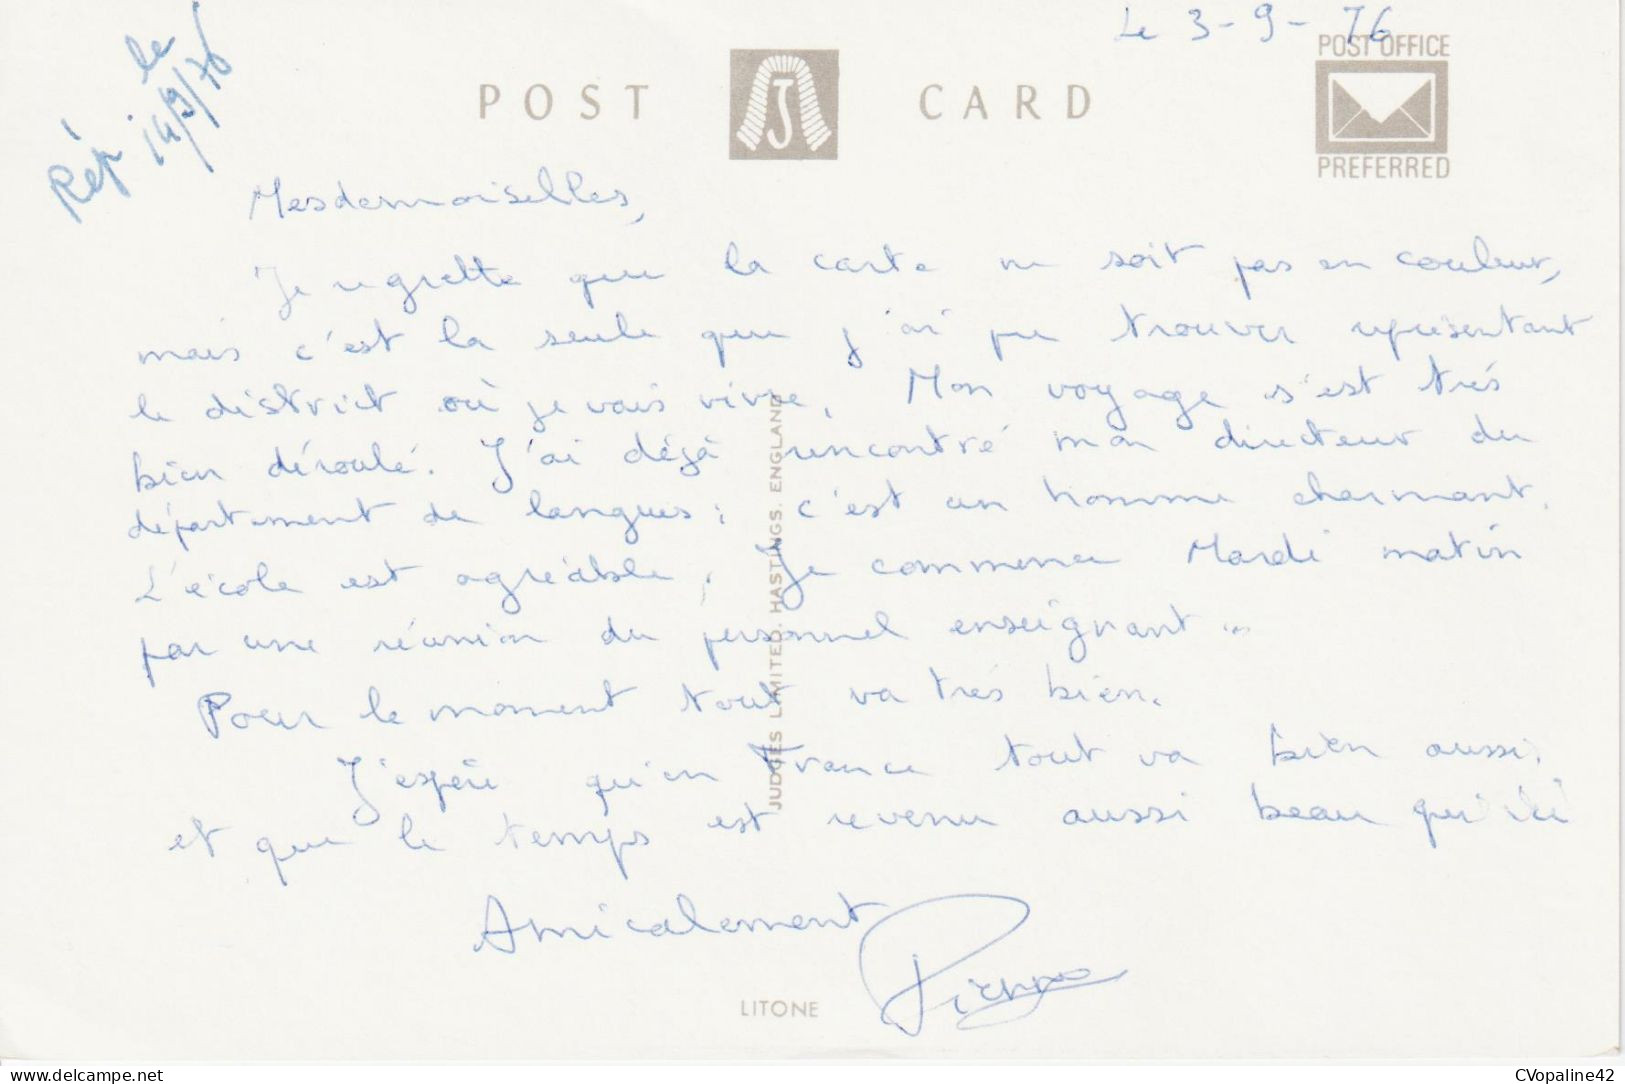 Le 3-9-76
Rép. le
14/9/76
POST CARD
POST OFFICE
PREFERRED
Mesdemoiselles,
Je regrette que la carte ne soit pas en couleur,
mais c'est la seule que j'ai pu trouver représentant
le district où je vais vivre. Mon voyage s'est très
bien déroulé. J'ai déjà rencontré mon directeur du
département de langues ; c'est un homme charmant.
L'école est agréable. Je commence Mardi matin
par une réunion du personnel enseignant...
Pour le moment tout va très bien.
J'espère qu'en France tout va bien aussi.
et que le temps est revenu aussi beau qu'ici
Amicalement
Pierre
JUDGES LIMITED, HASTINGS, ENGLAND
LITONE
delcampe.net
CVopaline42